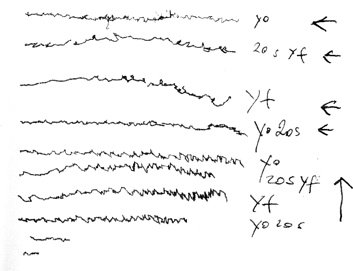 yo
20s yf
yf
yo 20s
yo
20s yf
yf
yo 20s